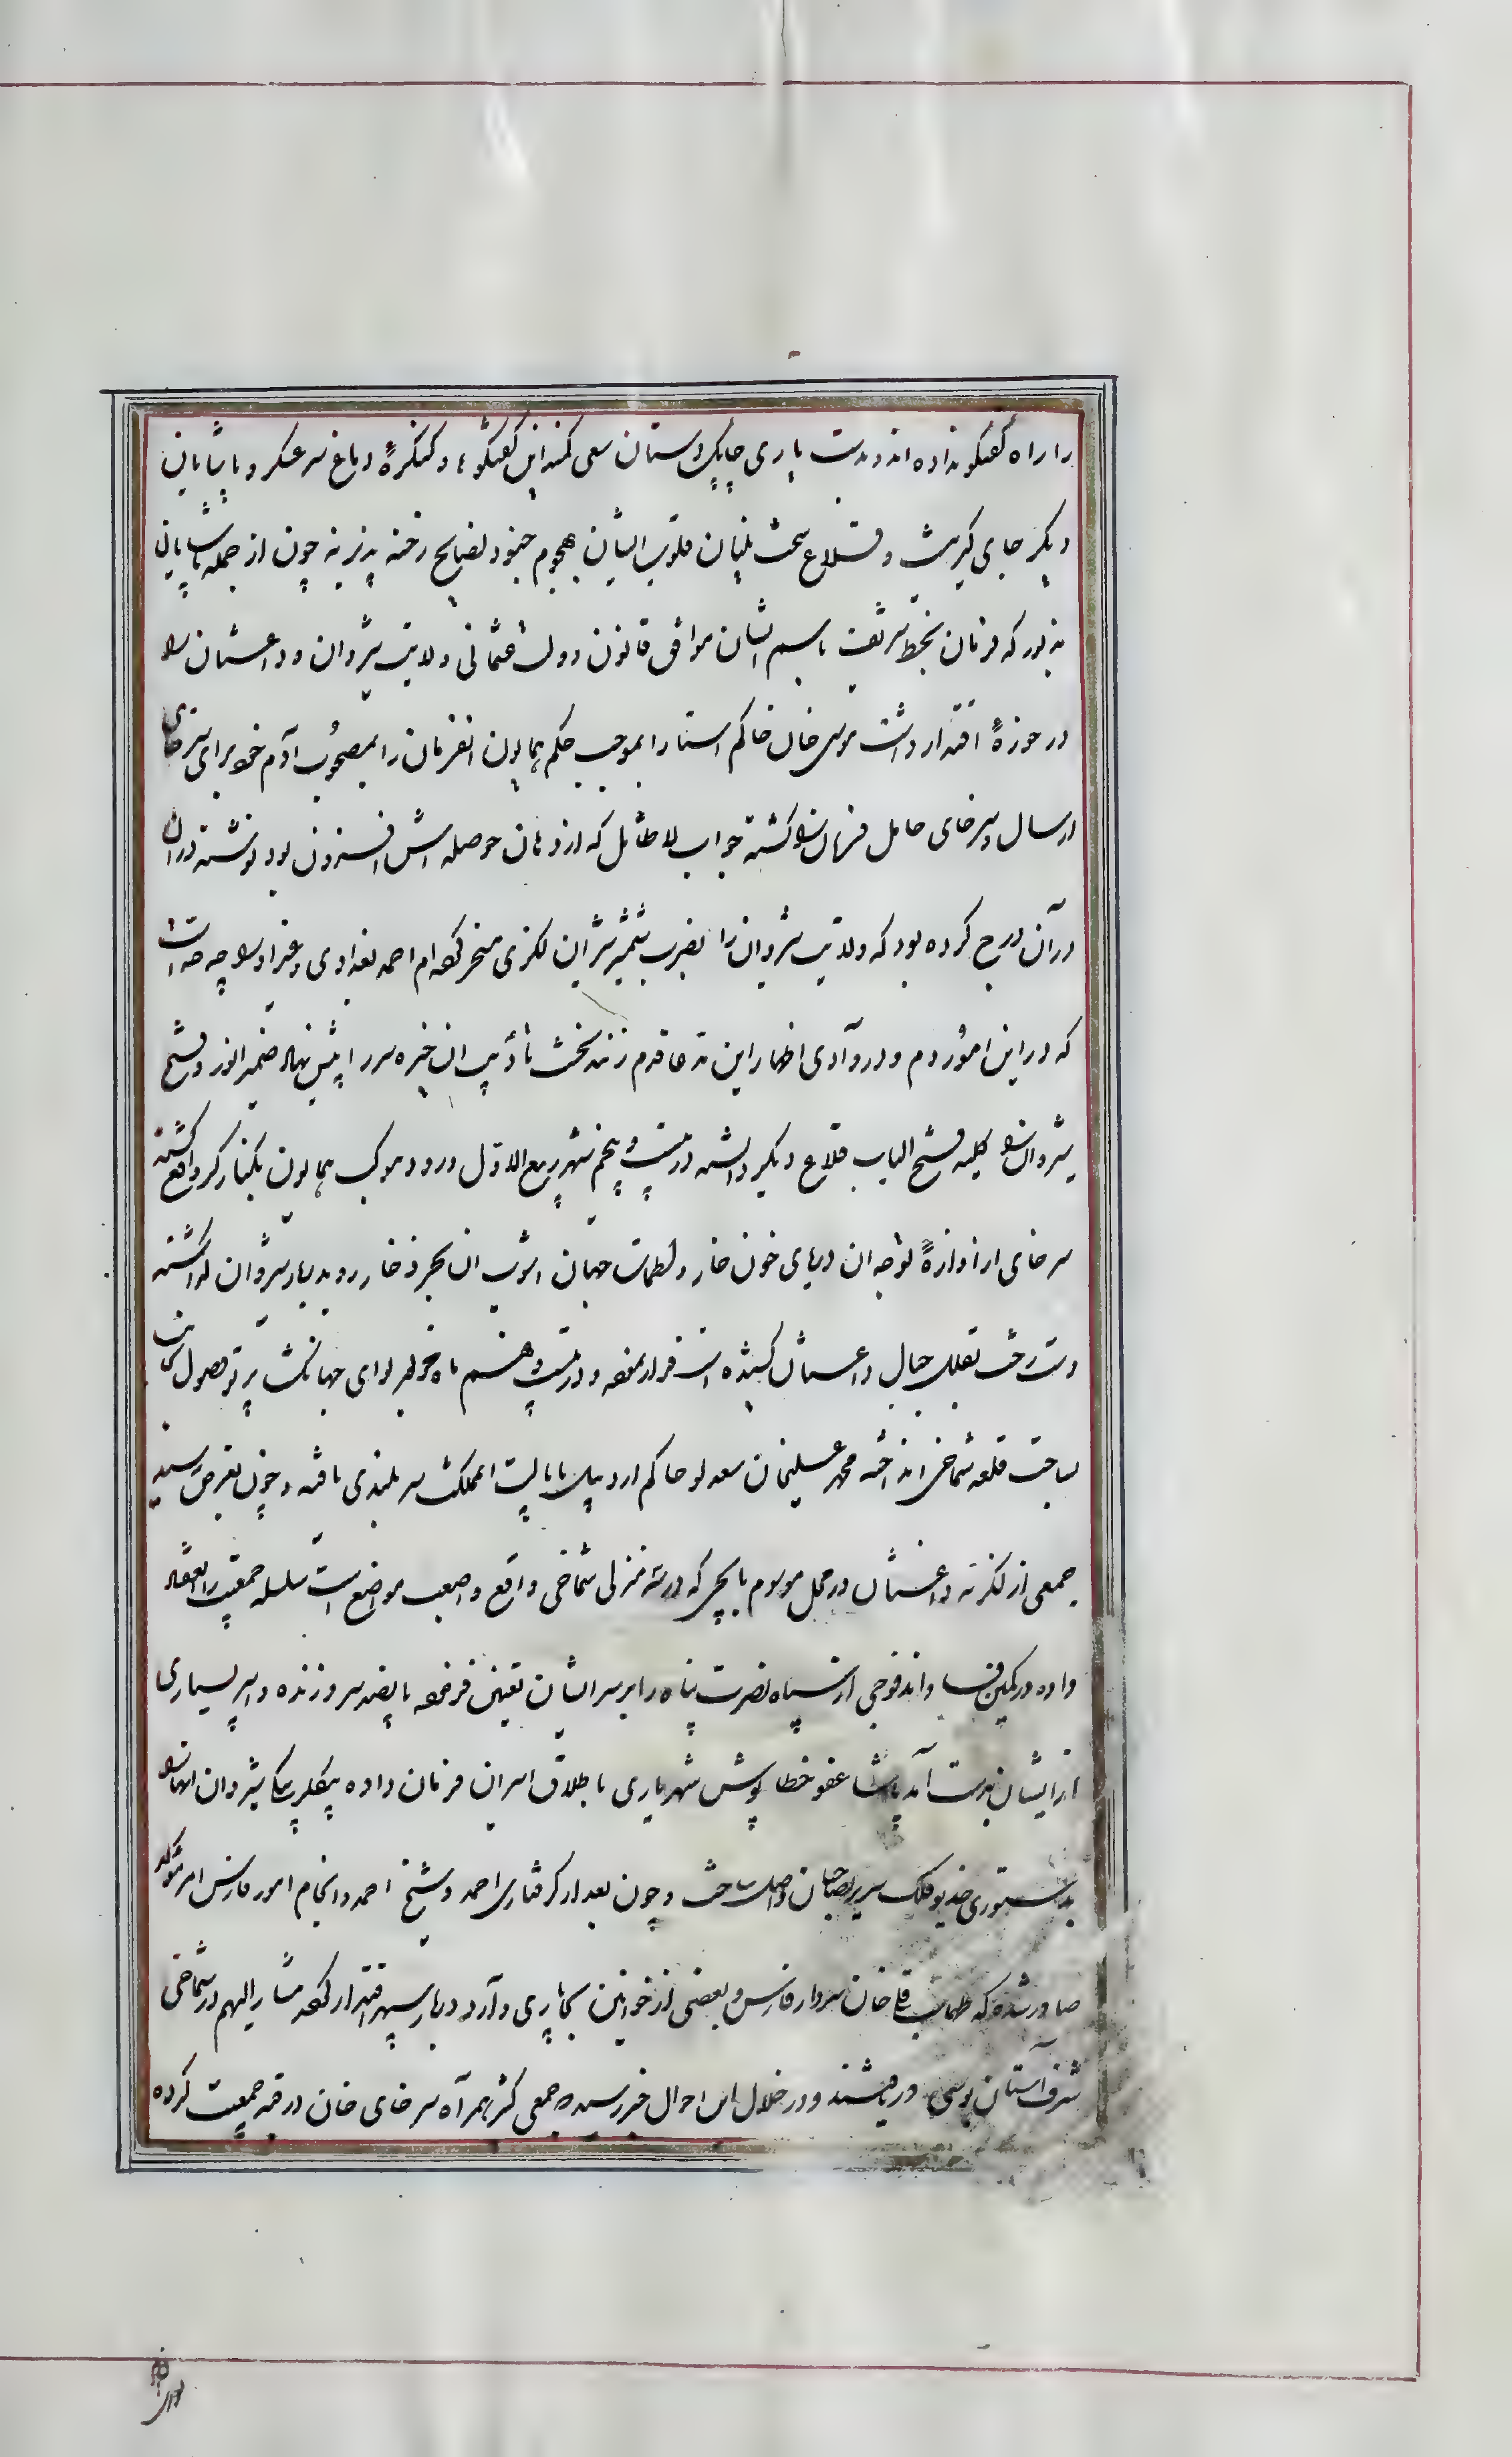 را راه گفتگو نداده اند و بدست یاری چاپک دستان سعی کمند این گفتگوها در کنگرهٔ دماغ سرعسکر و پاشایان
دیگر جای گیر گشت و قلاع سخت بنیان قلوب ایشان بهجوم جنود نصایح رخنه پذیر نه چون از جمله پاشایان
مذبور که فرمان بخط شریف باسم ایشان موافق قانون دولت عثمانی ولایت شیروان و داغستان را
در حوزهٔ اقتدار داشت موسی خان حاکم استارا بموجب حکم همایون انفرمان را بمصحوب آدم خود برای سرخای
ارسال و سرخای حامل فرمان را کشته جواب لا طائل که از دهان حوصله اش افزون بود نوشته در ان
در آن درج کرده بود که ولایت شروان را بضرب شمشیر شیران لکزی مسخر کرده ام احمد بغدادی و غیر او را چه حد است
که در این امور دم و در وادی اظهار این مدعا قدم زنند نخست تأدیب ان خیره سر را پیش نهاد ضمیر انور و فتح
شروان را کلید فتح الباب قلاع دیگر دانسته در بیست و پنجم شهر ربیع الاول ورود موکب همایون بکنار کر واقع گشته
سرخای از اوازهٔ توجه ان دریای خون خار و لطمات جهان اشوب ان بحر ذخار رو بدیار شروان گذاشته
دست رخت بقلل جبال داغستان کشیده است فرار نموده و در بیست و هفتم ماه مذبور لوای جهانگشا پرتو وصول
بساحت قلعه شماخی انداخته محمد علیخان سعدلو حاکم اردبیل بایالت المملکت سر بلندی یافته و چون بعرض رسید
جمعی از لکزیه داغستان در محل موسوم بابجی که در سه منزلی شماخی واقع و اصعب مواضع است سلسله جمعیت را انعقاد
داده در کمین فساد اند فوجی از سپاه نصرت پناه را بر سر ایشان تعیین فرموده پانصد سر و زنده و اسیر بسیاری
از ایشان بدست آمد پادشاه عفو خطا پوش شهریاری باطلاق اسیران فرمان داده بیگلربیگی شیروان انها را
بدستوری خدیو فلک سریر بصاحبان واصل ساخت و چون بعد از گرفتاری احمد و شیخ احمد و انجام امور فارس امر مؤکد
صادر شده که طهماسب قلی خان سردار فارس و بعضی از خوانین بچاپاری وارد دربار سپهر اقتدار گردد مشار الیهم در شماخی
شرف آستان بوسی دریافتند و در خلال این احوال خبر رسید جمعی کثیر همراه سرخای خان در قبه جمعیت کرده